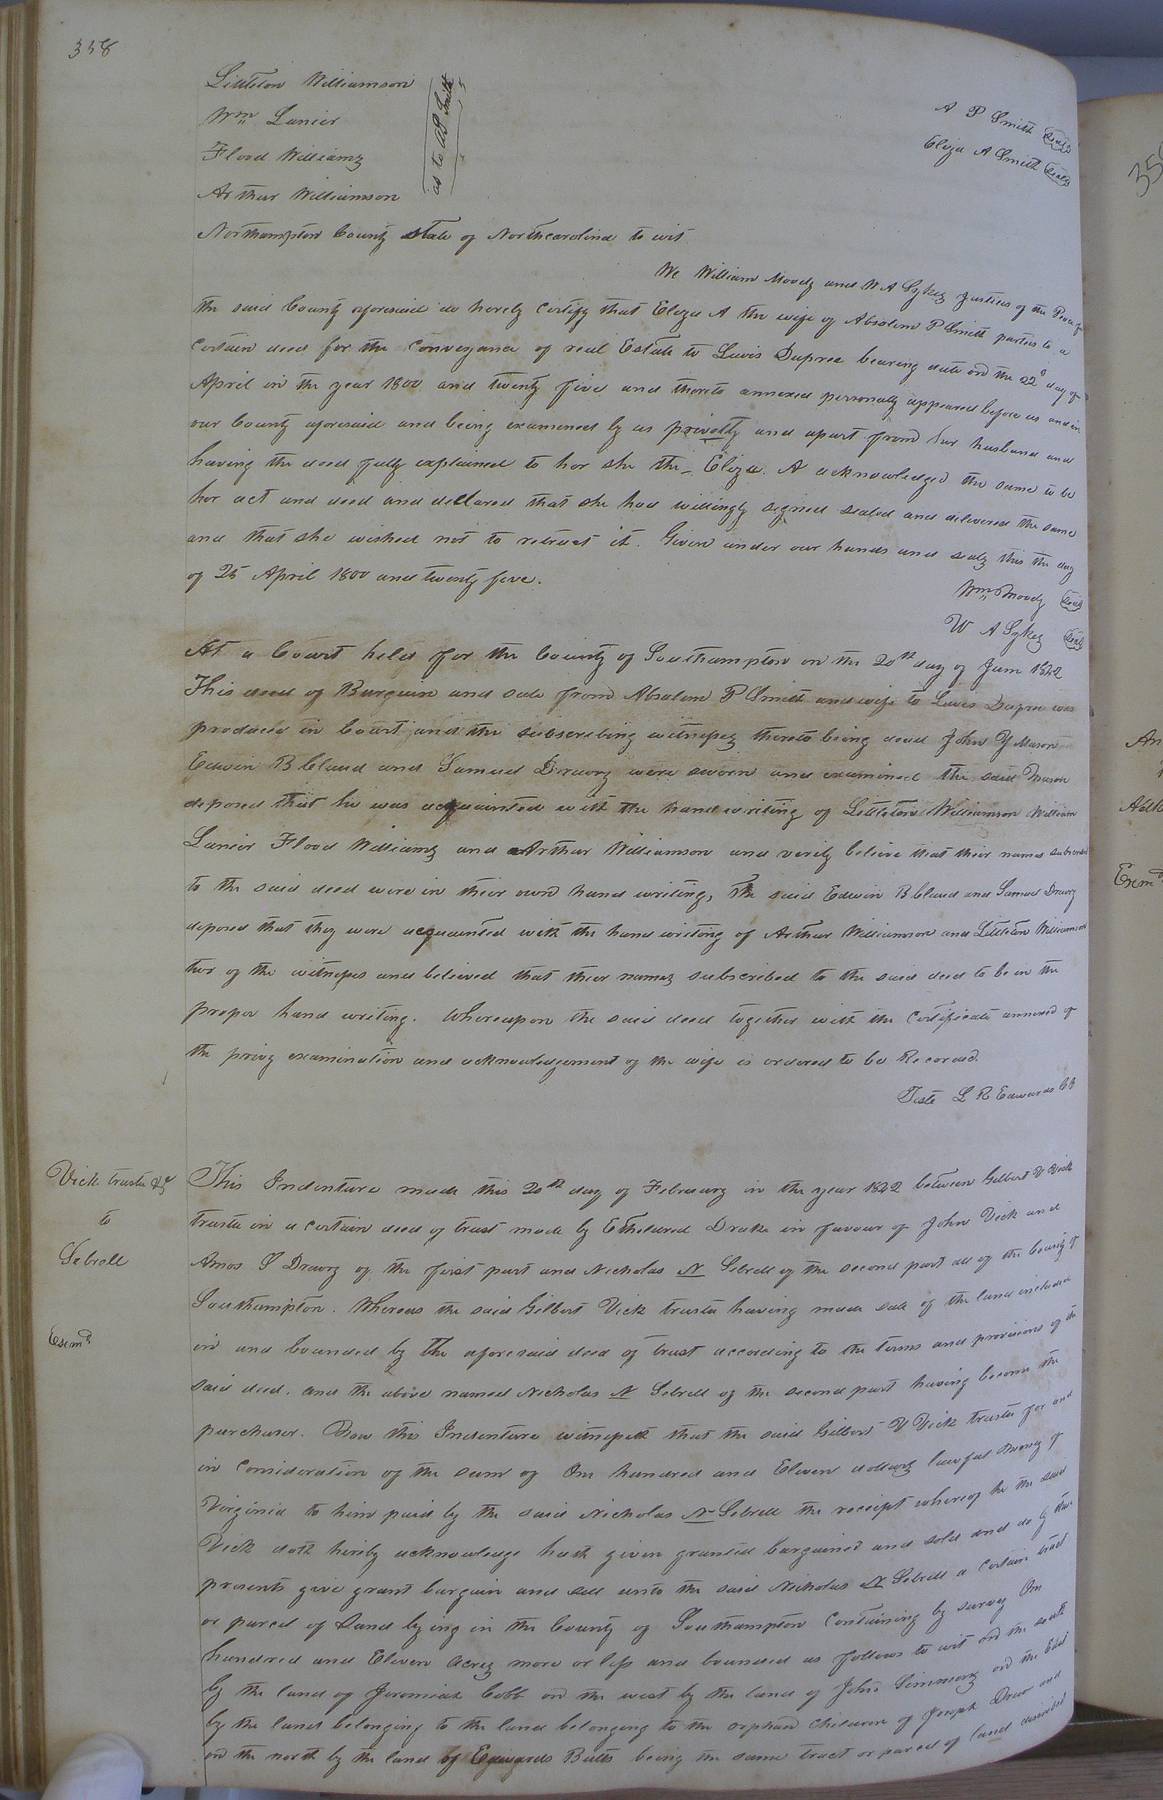 358
Littleton Williamson
Wm Lanier
Flood Williams
Arthur Williamson
as to AP Smith
A P Smith Seal
Eliza A Smith Seal
Northampton County State of Northcarolina to wit
We William Moody and W A Sykes Justices of the Peace of
the said County aforesaid do hereby Certify that Eliza A the wife of Absalom P Smith parties to a
certain deed for the Conveyance of real Estate to Lewis Dupree bearing date on the 22d day of
April in the year 1800 and twenty five and thereto annexed personally appeared before us and in
our County aforesaid and being examined by us privately and apart from her husband and
having the deed fully explained to her she the Eliza A acknowledged the same to be
her act and deed and declared that she had willingly signed sealed and delivered the same
and that she wished not to retract it. Given under our hands and seals this the day
of 25 April 1800 and twenty five.
Wm Moody Seal
W A Sykes Seal
At a Court held for the County of Southampton on the 20th day of June 1842
This deed of Bargain and sale from Absalom P Smith and wife to Lewis Dupree was
produced in Court and the subscribing witnesses thereto being dead John Y Mason
Edwin B Claud and Samuel Drewry were sworn and examined the said Mason
deposed that he was acquainted with the handwriting of Littleton Williamson William
Lanier Flood Williams and Arthur Williamson and verily believe that their names subscribed
to the said deed were in their own hand writing, The said Edwin B Claud and Samuel Drewry
deposed that they were acquainted with the hand writing of Arthur Williamson and Littleton Williamson
two of the witnesses and believed that their names subscribed to the said deed to be in the
proper hand writing. Whereupon the said deed together with the Certificate annexed of
the privy examination and acknowledgement of the wife is ordered to be Recorded.
Teste L R Edwards CC
Vick trustee &c
to
Sebrell
Exemd
This Indenture made this 20th day of February in the year 1842 between Gilbert V Vick
trustee in a certain deed of trust made by Etheldred Drake in favour of John Vick and
Amos S Drewry of the first part and Nicholas N Sebrell of the second part all of the County of
Southampton. Whereas the said Gilbert Vick trustee having made sale of the land included
in and bounded by the aforesaid deed of trust according to the terms and provisions of the
said deed. and the above named Nicholas N Sebrell of the second part having become the
purchaser. Now this Indenture witnesseth that the said Gilbert V Vick trustee for and
in Consideration of the sum of One hundred and Eleven dollars lawful money of
Virginia to him paid by the said Nicholas N Sebrell the receipt whereof he the said
Vick doth hereby acknowledge hath given granted bargained and sold and do by these
presents give grant bargain and sell unto the said Nicholas N Sebrell a certain tract
or parcel of Land lying in the County of Southampton Containing by survey One
hundred and Eleven Acres more or less and bounded as follows to wit on the south
by the land of Jeremiah Cobb on the west by the land of John Simmons on the East
by the land belonging to the land belonging to the orphan children of Joseph Drew and
on the north by the land of Edwards Butts being the same tract or parcel of land described
Exemd